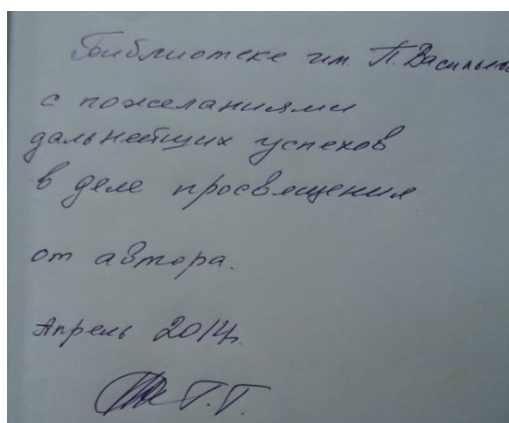 Библиотеке им. П. Васильева
с пожеланиями
дальнейших успехов
в деле просвящения
от автора.
Апрель 2014г.
Г.Г.